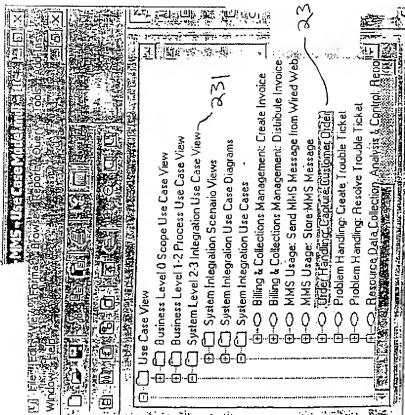 MMS - Use Case Model
File Edit View Format Browse Report Query Tools
Window Help
Use Case View
Business Level 0 Scope Use Case View
Business Level 1-2 Process Use Case View
System Level 2-3 Integration Use Case View
231
System Integration Scenario Views
System Integration Use Case Diagrams
System Integration Use Cases
Billing & Collections Management: Create Invoice
Billing & Collections Management: Distribute Invoice
MMS Usage: Send MMS Message from Wired Web
MMS Usage: Store MMS Message
23
Order Handling: Capture Customer Order
Problem Handling: Create Trouble Ticket
Problem Handling: Resolve Trouble Ticket
Resource Data Collection, Analysis & Control: Repo